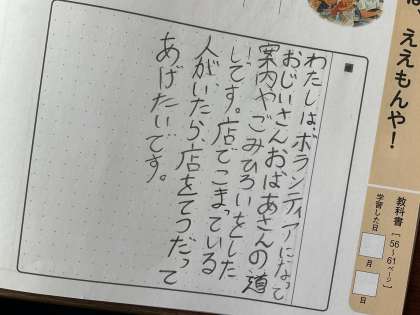 ええもんや！
教科書［56～61ページ］
学習した日
月
日
わたしは、ボランティアになって
おじいさんおばあさんの道
案内やごみひろいをした
いです。店でこまっている
人がいたら、店をてつだって
あげたいです。